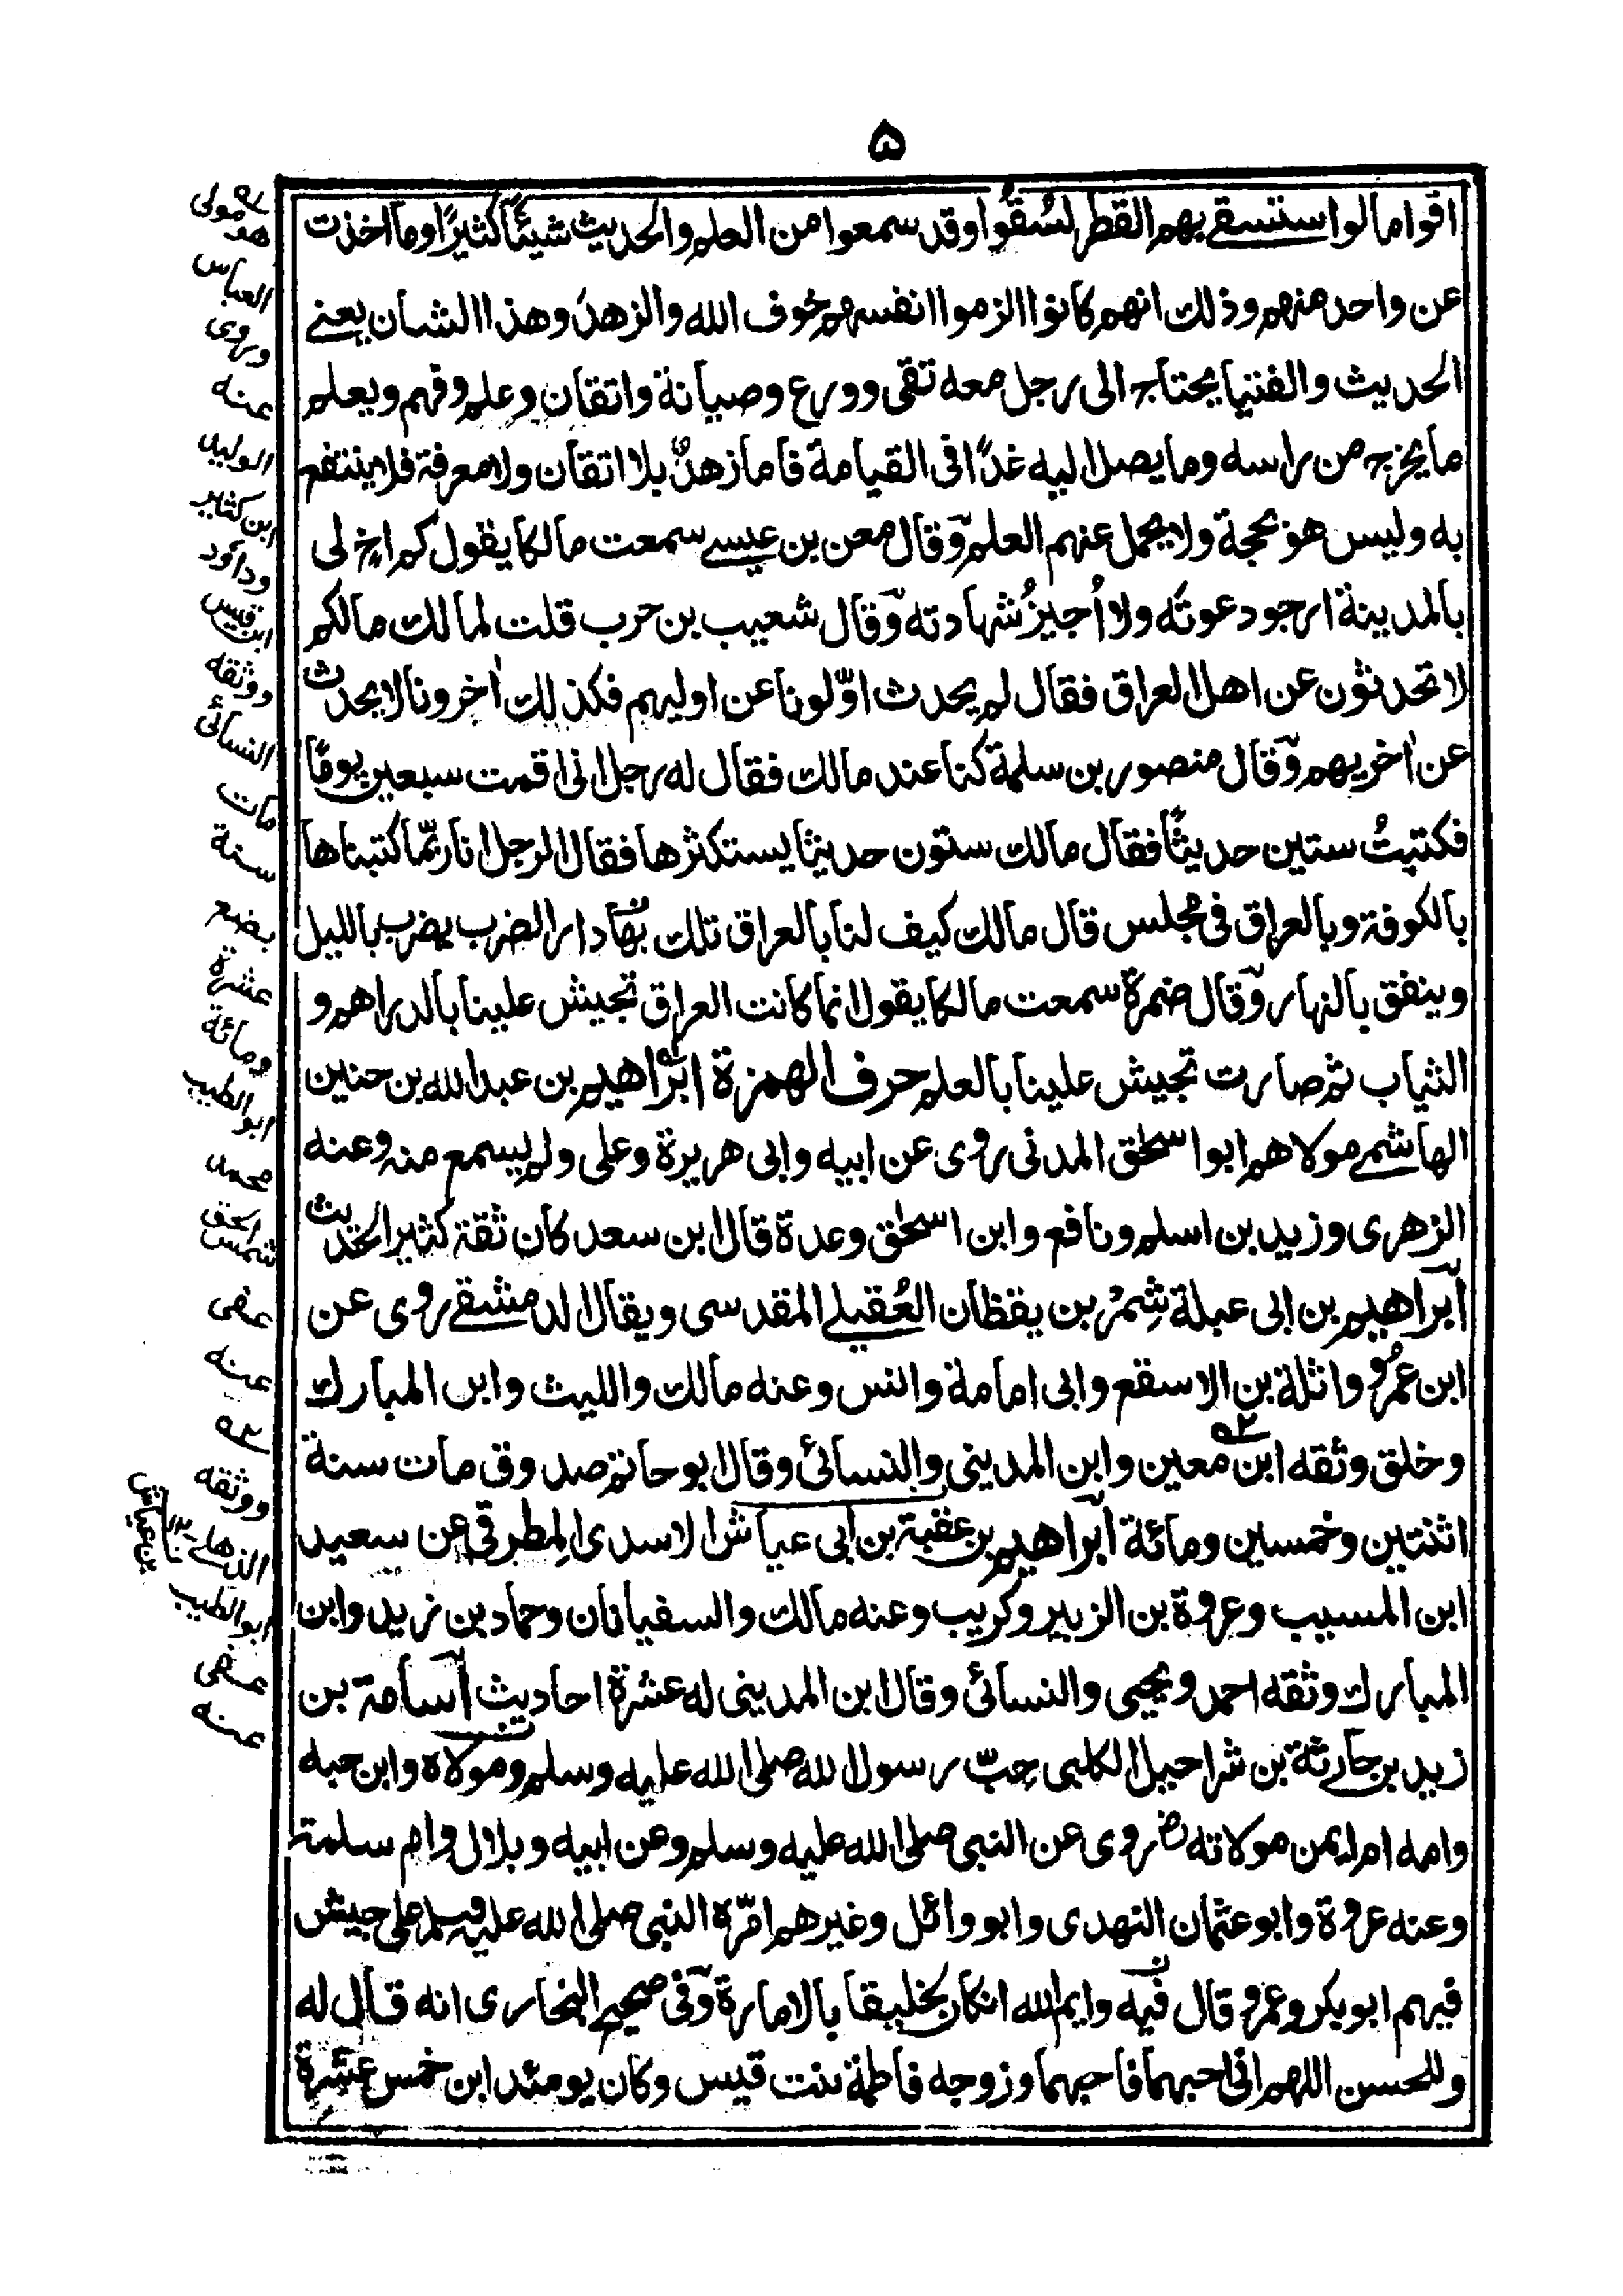 ۵
اقواما لوا ستسقے بهم القطر لسُقُوا وقد سمعوا من العلم والحديث شيئًا كثيرًا وما اخذت
عن واحد منهم وذلك انهم كانوا الزموا انفسهم خوف الله والزهد وهذا الشان يعنے
الحديث والفتيا يحتاج الى رجل معه تقى وورع وصيانة واتقان وعلم وفهم ويعلم
ما يخرج من راسه وما يصل اليه غدًا فى القيامة فاما زهدٌ بلا اتقان ولا معرفة فلا ينتفع
به وليس هو بحجة ولا يحمل عنهم العلم وقال معن بن عيسے سمعت مالكا يقول كم اخ لى
بالمدينة ارجو دعوته ولا اُجيزُ شهادته وقال شعيب بن حرب قلت لمالك مالكم
لا تحدثون عن اهل العراق فقال لم يحدث اوّلونا عن اوليهم فكذلك اٰخرونا لا يحدث
عن اٰخريهم وقال منصور بن سلمة كنا عند مالك فقال له رجل انى اقمت سبعين يومًا
فكتبتُ ستين حديثًا فقال مالك ستون حديثا يستكثرها فقال الرجل انا ربّما كتبناها
بالكوفة وبالعراق فى مجلس قال مالك كيف لنا بالعراق تلك بها دار الضرب يضرب بالليل
وينفق بالنهار وقال ضمرة سمعت مالكا يقول انما كانت العراق تجيش علينا بالدراهم و
الثياب ثم صارت تجيش علينا بالعلم حرف الهمزة ابراهيم بن عبدالله بن حنين
الهاشمے مولاهم ابو اسحٰق المدنى روى عن ابيه وابى هريرة وعلى ولم يسمع منه وعنه
الزهرى وزيد بن اسلم ونافع وابن اسحٰق وعدة قال ابن سعد كان ثقة كثير الحديث
ابراهيم بن ابى عبلة شِمْرُ بن يقظان العُقيلے المقدسى ويقال الدمشقے روى عن
ابن عمر و واثلة بن الاسقع وابى امامة وانس وعنه مالك والليث وابن المبارك
وخلق وثقه ابن معين وابن المدينى والنسائى وقال ابو حاتم صدوق مات سنة
اثنتين وخمسين ومائة ابراهيم بن عقبة بن ابى عياش الاسدى المطرقى عن سعيد
ابن المسيب وعروة بن الزبير وكريب وعنه مالك والسفيانان وحماد بن زيد وابن
المبارك وثقه احمد ويحيى والنسائى وقال ابن المدينى له عشرة احاديث اسامة بن
زيد بن حارثة بن شراحيل الكلبى حِبّ رسول الله صلى الله عليه وسلم ومولاه وابن حبه
وامه ام ايمن مولاته روى عن النبى صلى الله عليه وسلم وعن ابيه وبلال وام سلمة
وعنه عروة وابو عثمان النهدى وابو وائل وغيرهم امّره النبى صلى الله عليه وسلم على جيش
فيهم ابو بكر وعمر و قال فيه وايم الله انكان لخليقا بالامارة وفى صحيح البخارى انه قال له
وللحسن اللهم انى احبهما فاحبهما وزوجه فاطمة بنت قيس وكان يومئذ ابن خمس عشرة
هو مولى
العباس
وروى
عنه
الوليد
ابن كثير
وداؤد
ابن قيس
ووثقه
النسائى
مات
سنة
بضع
عشرة
ومائة
ابو الطيب
محمد
شمس الحق
عفى
عنه
۵۲
ووثقه
الذهلے
ابو الطيب
عفى
عنه